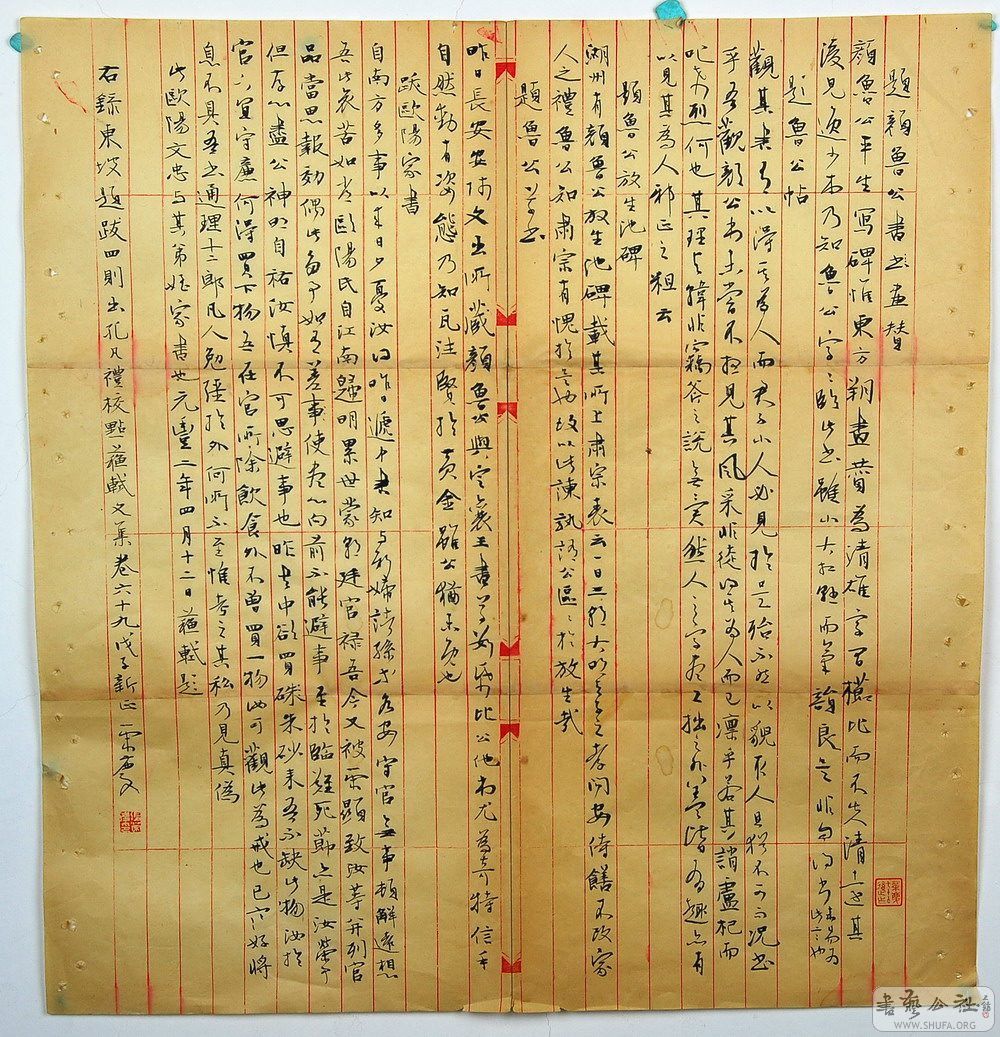 題顏魯公書畫贊
顏魯公平生寫碑惟東方朔畫贊為清雄字間櫛比而不失清遠其
後見逸少本乃知魯公字〻臨此書雖小大相懸而氣韻良是非自得於書未易為此言也
題魯公帖
觀其書有以得其為人而君子小人必見於是殆不然以貌取人且猶不可而況書
乎吾觀顏公書未嘗不想見其風采非徒得其為人而已凜乎若其誚盧杞而
叱希烈何也其理與韓非竊斧之說無異然人之字書工拙之外蓋皆有趣亦有
以見其為人邪正之粗云
題魯公放生池碑
湖州有顏魯公放生池碑載其所上肅宗表云一日三朝大明天子之孝問安侍饍不改家
人之禮魯公知肅宗有愧於是也故以此諫孰謂公區〻於放生哉
題魯公草書
昨日長安安師文出所藏顏魯公與定襄王書草數紙比公他書尤為奇特信手
自然動有姿態乃知瓦注賢於黃金雖公猶未免也
跋歐陽家書
自南方多事以來日夕憂汝得昨日遞中書知與新婦諸孫等各安守官無事頓解遠想
吾此哀苦如常歐陽氏自江南歸明累世蒙朝廷官祿吾今又被榮顯致汝等并列官
品當思報效偶此多事如有差事使盡心向前不能避事至於臨難死節亦是汝榮事
但存心盡公神明自祐汝慎不可思避事也昨書中欲買硃朱砂來吾不缺此物汝於
官下宜守廉何得買下物吾在官所除飲食外不曾買一物汝可觀此為戒也已寒好將
息不具吾書通理十二郎凡人勉強於外何所不至惟考之其私乃見真偽
此歐陽文忠與其弟姪家書也元豐二年四月十二日蘇軾題
右錄東坡題跋四則出孔凡禮校點蘇軾文集卷六十九戊子新正
書藝公社
WWW.SHUFA.ORG